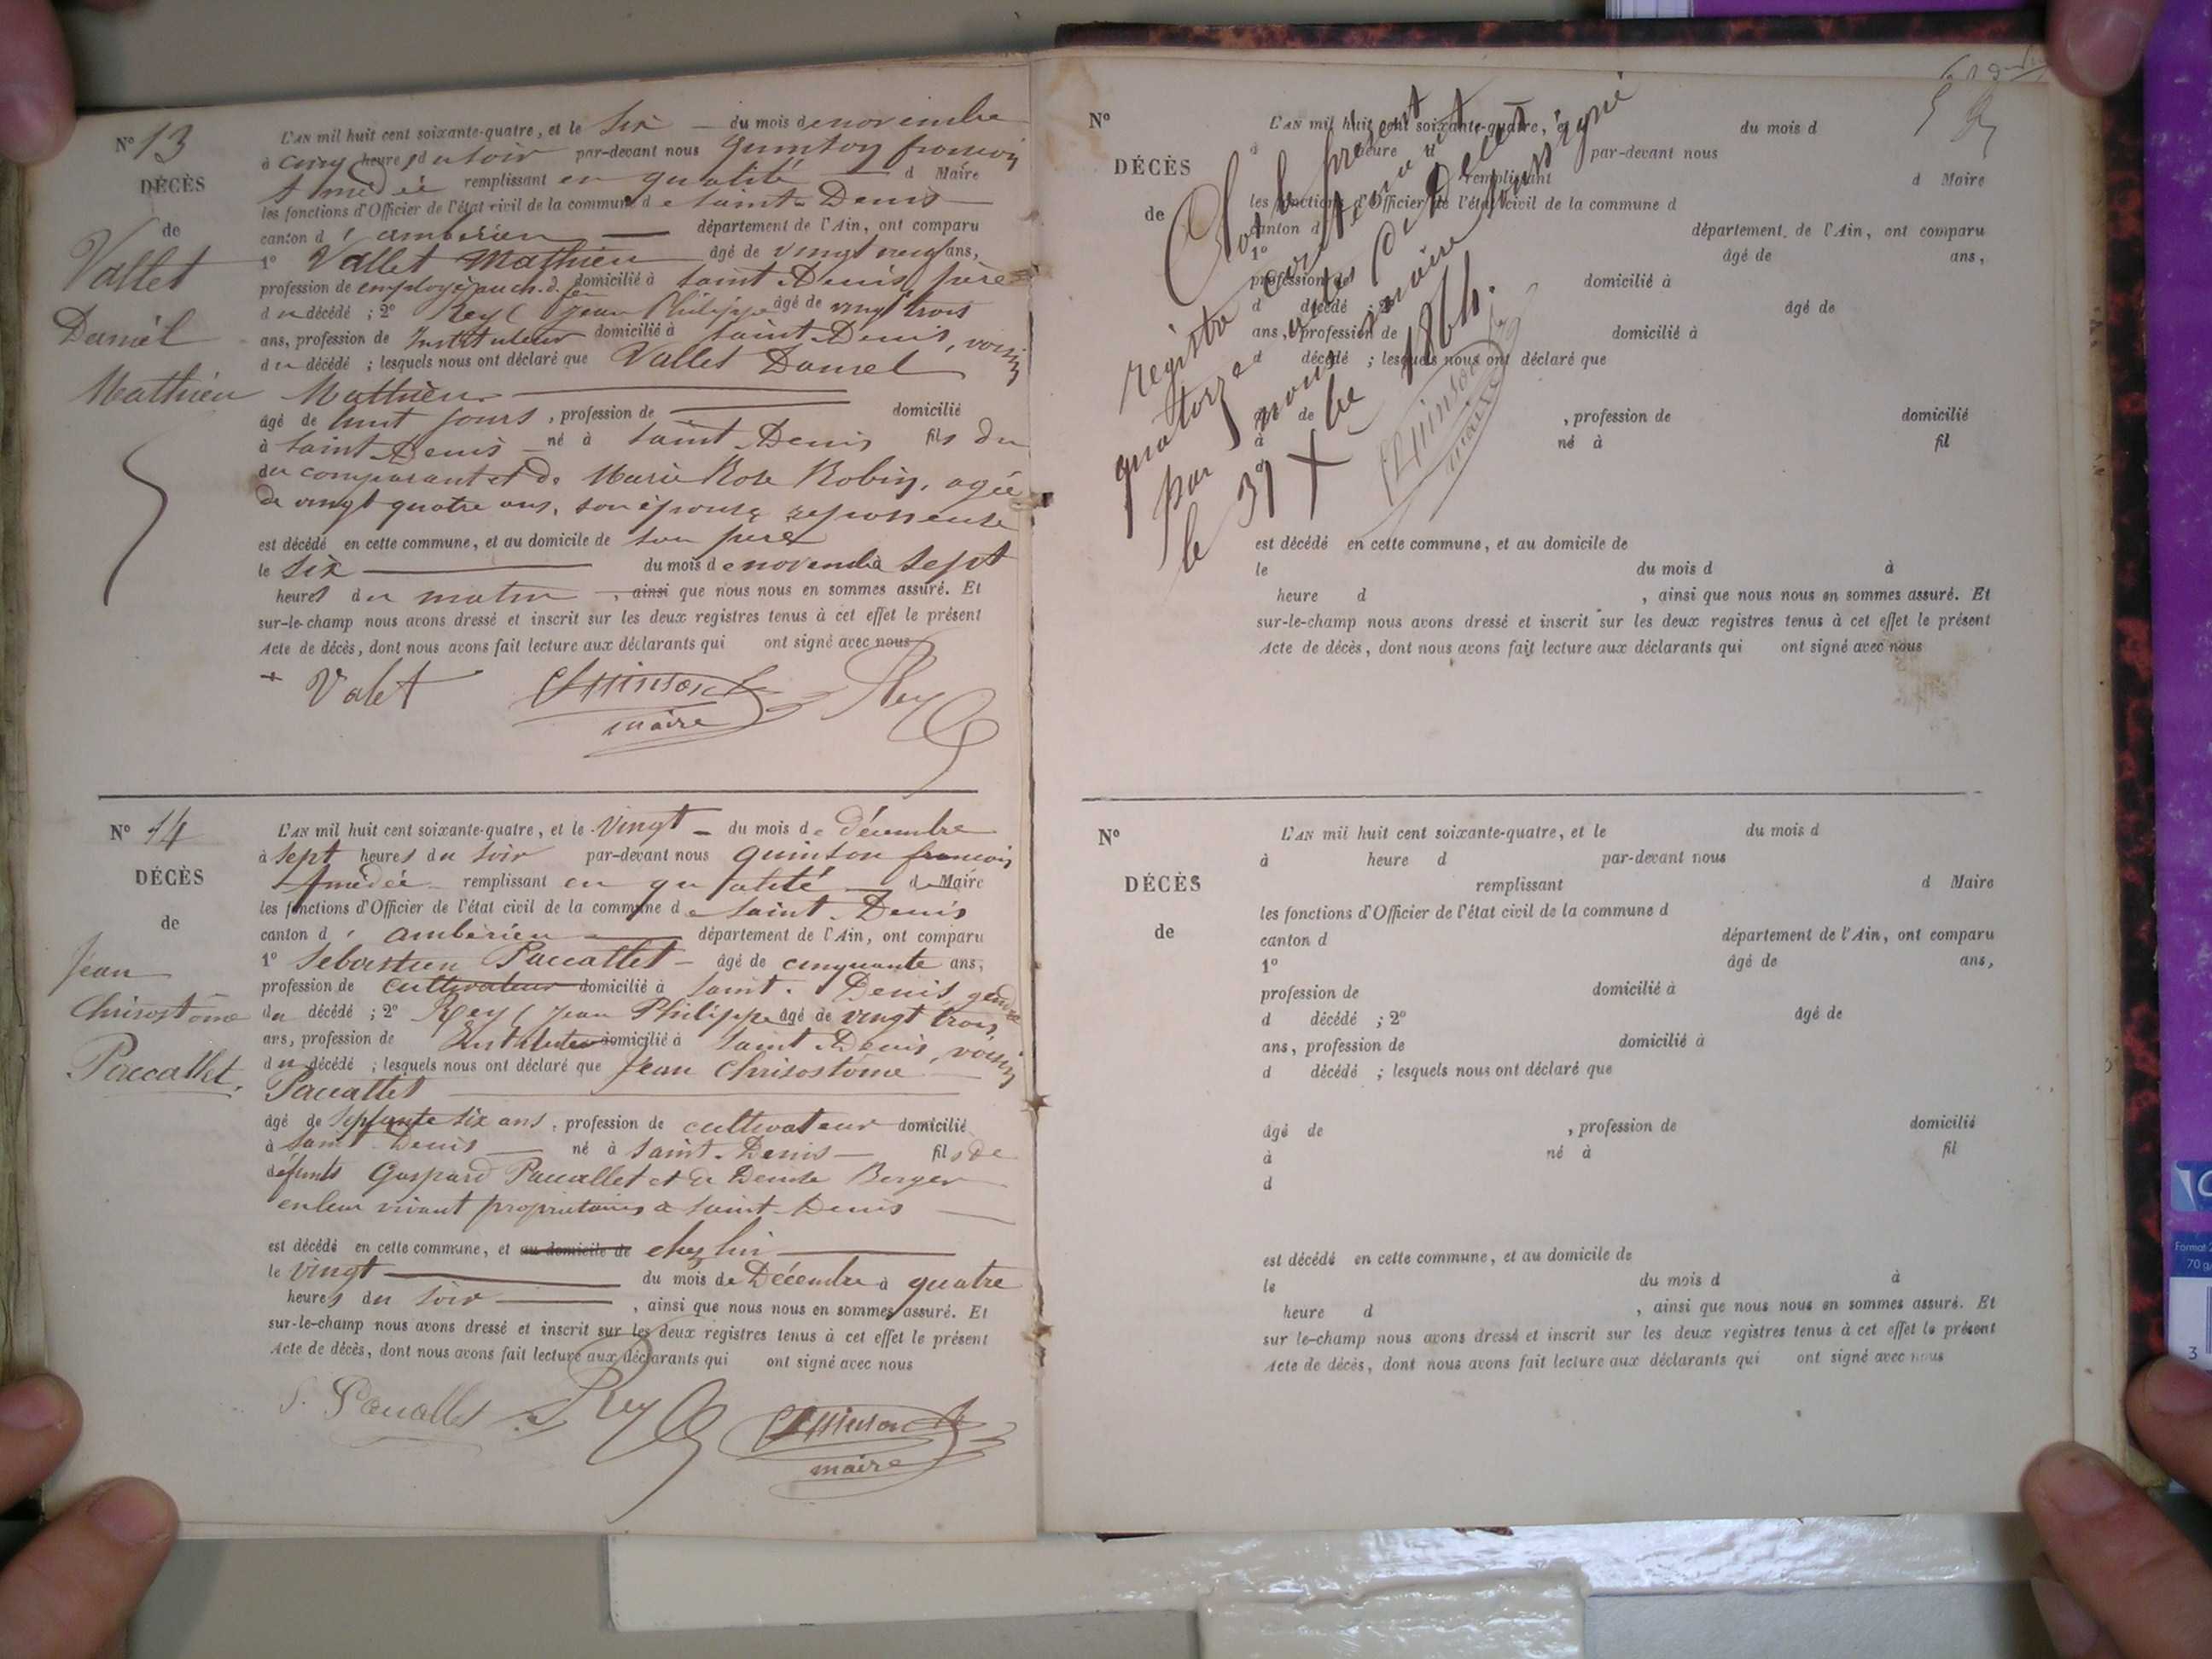 N° 13
DÉCÈS
de
Vallet
Daniel
Mathieu
L'AN mil huit cent soixante-quatre, et le six du mois de novembre
à cinq heures du soir par-devant nous quinson francois
Amédée remplissant en qualité d Maire
les fonctions d'Officier de l'état civil de la commune de Saint-Denis
canton d'ambérieu département de l'Ain, ont comparu
1° Vallet Mathieu âgé de vingt neuf ans,
profession de employé au ch. d. fer domicilié à Saint Denis, père
du décédé ; 2° Rey Jean Philippe âgé de vingt trois
ans, profession de Instituteur domicilié à Saint-Denis, voisin
du décédé ; lesquels nous ont déclaré que Vallet Daniel
Mathieu
âgé de huit jours, profession de domicilié
à Saint Denis né à Saint-Denis fils du
du comparant et de Marie Rose Robin, agée
de vingt quatre ans, son épouse
est décédé en cette commune, et au domicile de son père
le six du mois de novembre à sept
heures du matin, ainsi que nous nous en sommes assuré. Et
sur-le-champ nous avons dressé et inscrit sur les deux registres tenus à cet effet le présent
Acte de décès, dont nous avons fait lecture aux déclarants qui ont signé avec nous
Valet Quinson Rey
maire
N° 14
DÉCÈS
de
Jean
Chrisostôme
Paccallet.
L'AN mil huit cent soixante-quatre, et le vingt du mois de décembre
à sept heures du soir par-devant nous quinson francois
Amédée remplissant en qualité de Maire
les fonctions d'Officier de l'état civil de la commune de Saint-Denis
canton d'ambérieu département de l'Ain, ont comparu
1° Sebastien Paccallet âgé de cinquante ans,
profession de cultivateur domicilié à Saint-Denis, gendre
du décédé ; 2° Rey Jean Philippe âgé de vingt trois
ans, profession de Instituteur domicilié à Saint-Denis, voisin
du décédé ; lesquels nous ont déclaré que Jean Chrisostôme
Paccallet
âgé de septante six ans, profession de cultivateur domicilié
à Saint Denis né à Saint-Denis fils de
défunts Gaspard Paccallet et de Denise Berger
en leur vivant propriétaires à Saint-Denis
est décédé en cette commune, et au domicile de chez lui
le vingt du mois de Décembre à quatre
heures du soir, ainsi que nous nous en sommes assuré. Et
sur-le-champ nous avons dressé et inscrit sur les deux registres tenus à cet effet le présent
Acte de décès, dont nous avons fait lecture aux déclarants qui ont signé avec nous
S. Paccallet Rey Quinson
maire
N°
DÉCÈS
de
L'AN mil huit cent soixante-quatre, et le du mois d
à heure d par-devant nous
remplissant d Maire
les fonctions d'Officier de l'état civil de la commune d
canton d département de l'Ain, ont comparu
1° âgé de ans,
profession de domicilié à
d décédé ; 2° âgé de
ans, profession de domicilié à
d décédé ; lesquels nous ont déclaré que
âgé de , profession de domicilié
à né à fil
est décédé en cette commune, et au domicile de
le du mois d à
heure d , ainsi que nous nous en sommes assuré. Et
sur-le-champ nous avons dressé et inscrit sur les deux registres tenus à cet effet le présent
Acte de décès, dont nous avons fait lecture aux déclarants qui ont signé avec nous
Clos le présent
registre contenant
quatorze actes de Décès
par nous maire soussigné
le 31 Xbre 1864.
Quinson
maire
N°
DÉCÈS
de
L'AN mil huit cent soixante-quatre, et le du mois d
à heure d par-devant nous
remplissant d Maire
les fonctions d'Officier de l'état civil de la commune d
canton d département de l'Ain, ont comparu
1° âgé de ans,
profession de domicilié à
d décédé ; 2° âgé de
ans, profession de domicilié à
d décédé ; lesquels nous ont déclaré que
âgé de , profession de domicilié
à né à fil
d
est décédé en cette commune, et au domicile de
le du mois d à
heure d , ainsi que nous nous en sommes assuré. Et
sur le-champ nous avons dressé et inscrit sur les deux registres tenus à cet effet le présent
Acte de décès, dont nous avons fait lecture aux déclarants qui ont signé avec nous